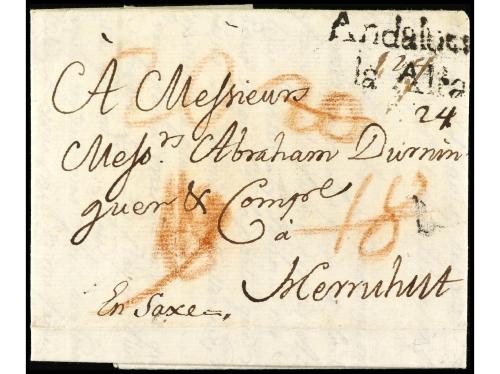 Andaluci
la Alta
24
À Messieurs
Messrs Abraham Durnin-
guer & Compe
à 18
Herruhut
En Saxe